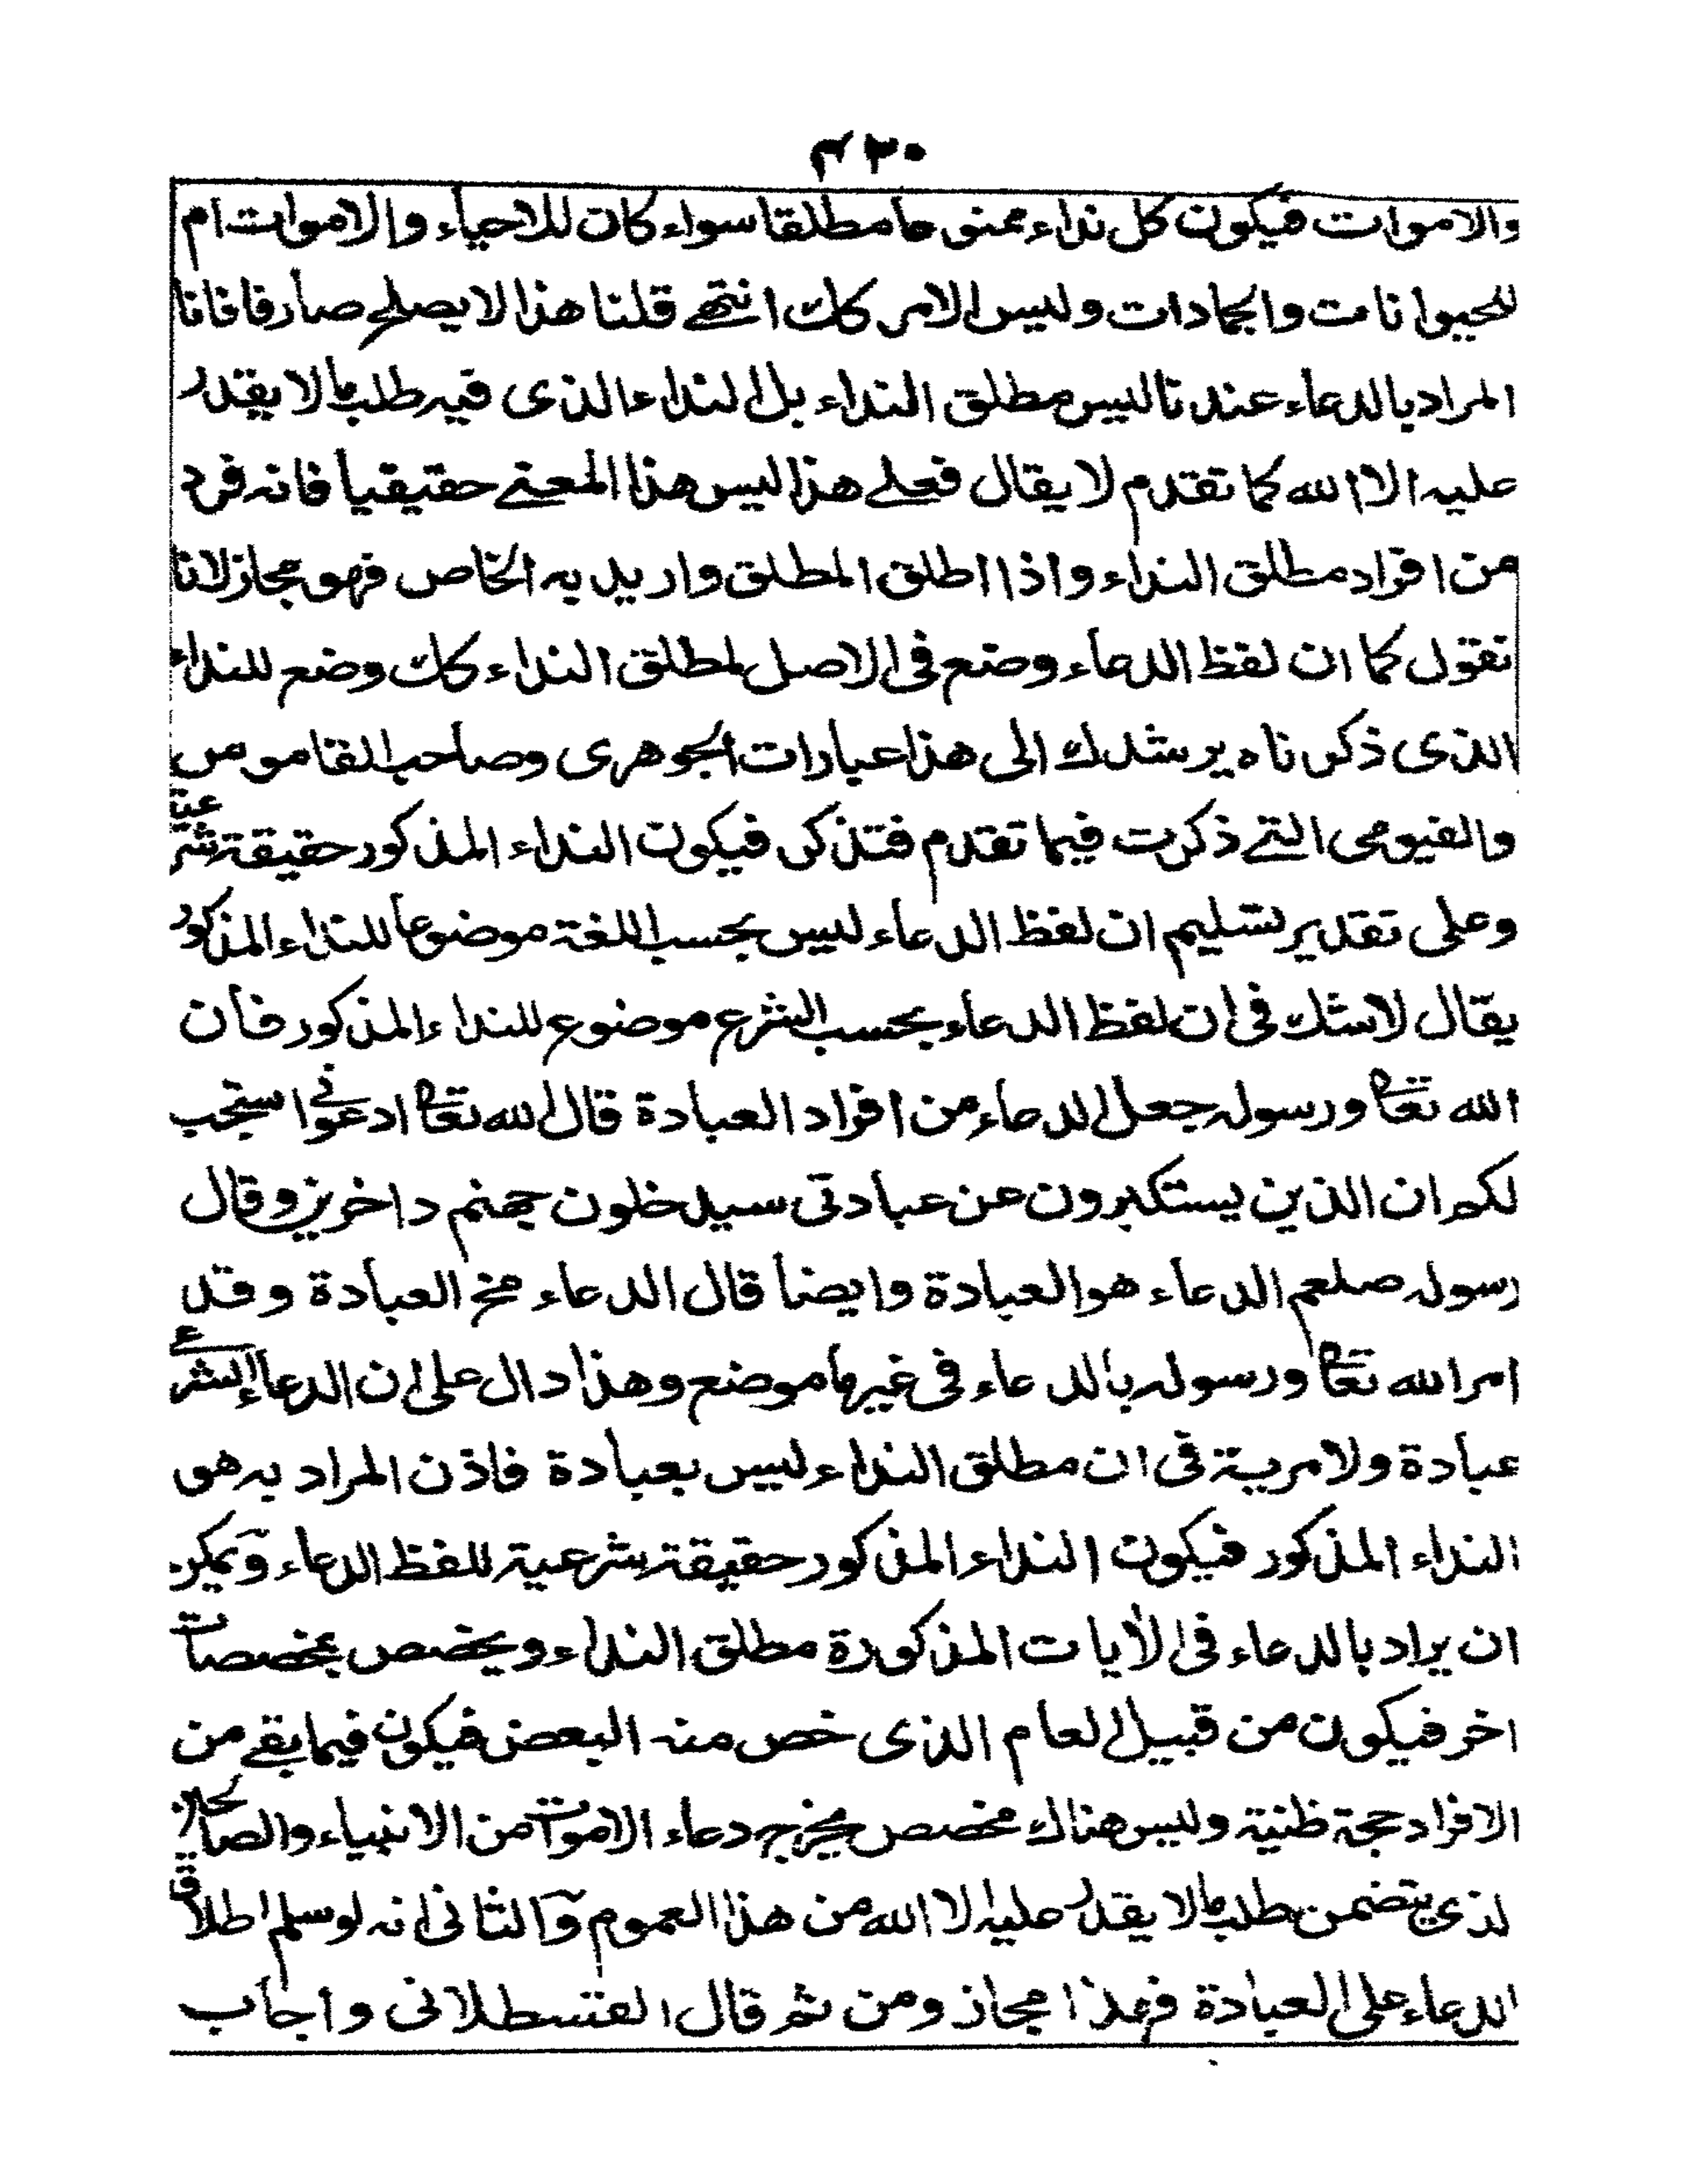 ۴۳۰
والاموات فيكون كل نداء ممنوعا مطلقا سواء كان للاحياء والاموات ام
للحيوانات والجمادات وليس الامر كك انتهى قلنا هذا لا يصلح صارفا فانا
المراد بالدعاء عندنا ليس مطلق النداء بل النداء الذى فيه طلب ما لا يقدر
عليه الا الله كما تقدم لا يقال فعلے هذا ليس هذا المعنے حقيقيا فانه فرد
من افراد مطلق النداء واذا اطلق المطلق واريد به الخاص فهو مجاز لانا
نقول كما ان لفظ الدعاء وضع فى الاصل لمطلق النداء كك وضع للنداء
الذى ذكرناه يرشدك الى هذا عبارات الجوهرى وصاحب القاموس
والفيومى التے ذكرت فيما تقدم فتذكر فيكون النداء المذكور حقيقة شرعية
وعلى تقدير تسليم ان لفظ الدعاء ليس بحسب اللغة موضوعا للنداء المذكور
يقال لا شك فى ان لفظ الدعاء بحسب الشرع موضوع للنداء المذكور فان
الله تعالى ورسوله جعل الدعاء من افراد العبادة قال الله تعالى ادعونى استجب
لكم ان الذين يستكبرون عن عبادتى سيدخلون جهنم داخرين وقال
رسوله صلعم الدعاء هو العبادة وايضا قال الدعاء مخ العبادة وقد
امر الله تعالى ورسوله بالدعاء فى غير ما موضع وهذا دال على ان الدعاء الشرعے
عبادة ولا مرية فى ان مطلق النداء ليس بعبادة فاذن المراد به هو
النداء المذكور فيكون النداء المذكور حقيقة شرعية للفظ الدعاء ويمكن
ان يراد بالدعاء فى الآيات المذكورة مطلق النداء ويخصص بمخصصات
اخر فيكون من قبيل العام الذى خص منه البعض فيكون فيما بقے من
الافراد حجة ظنية وليس هناك مخصص يخرج دعاء الاموات من الانبياء والصالحين
لذى يتضمن طلب ما لا يقدر عليه الا الله من هذا العموم والثانى انه لو سلم اطلاق
الدعاء على العبادة فهذا مجاز ومن ثم قال القسطلانى واجاب